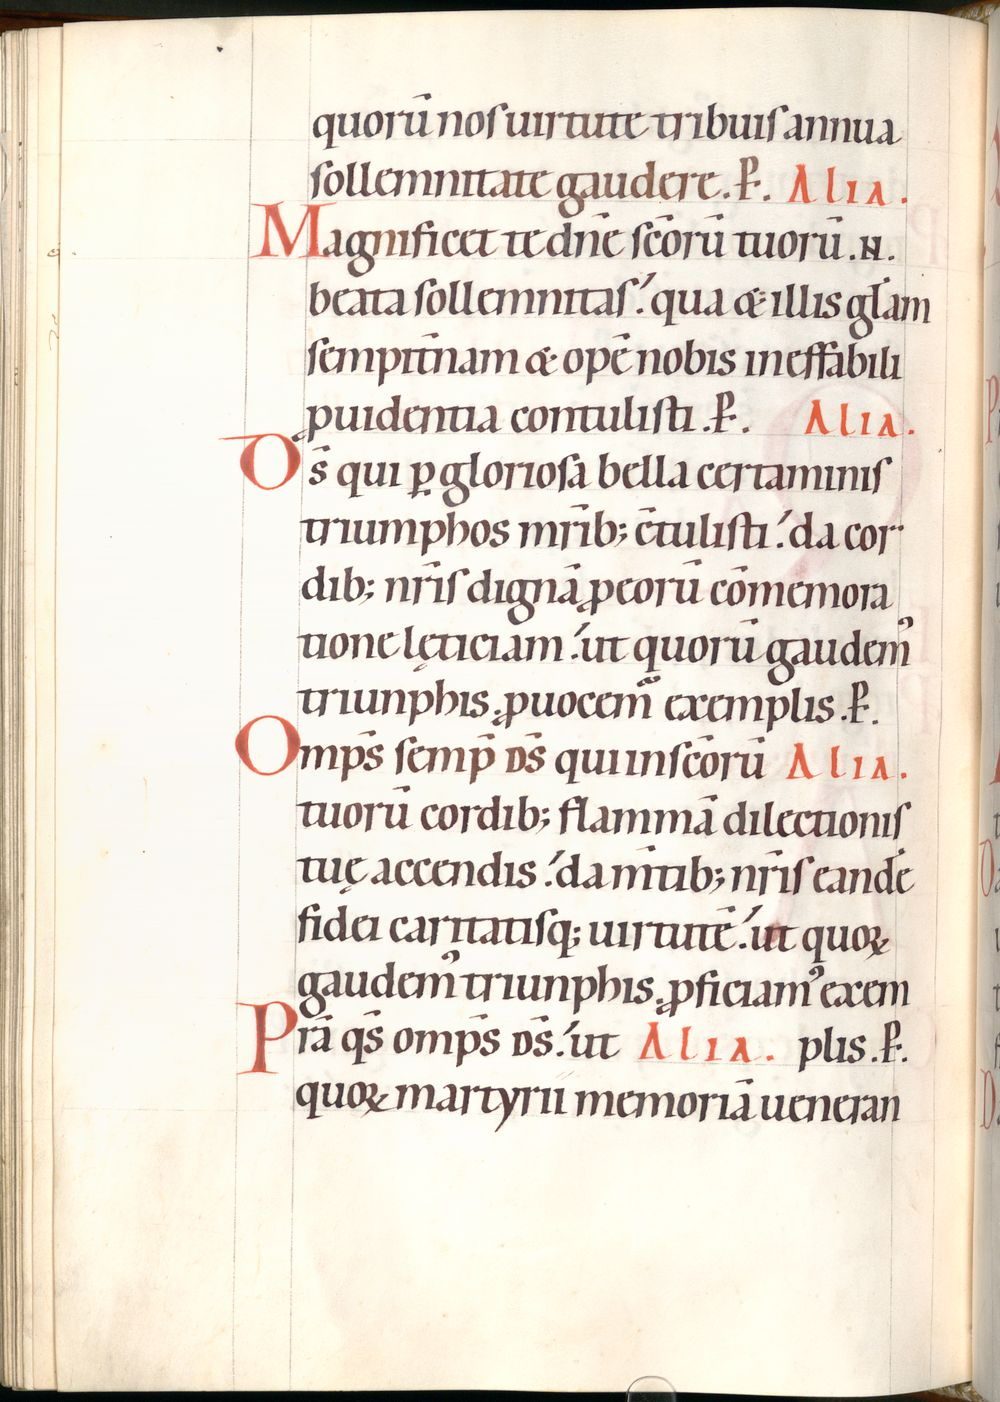 quorū nos uirtute tribuis annua
sollemnitate gaudere. P̄. Alia.
Magnificet te dn̄e sc̄orū tuorū .N.
beata sollemnitas: qua & illis gl̄am
sempit̄nam & opē nobis ineffabili
ꝓuidentia contulisti. P̄. Alia.
Ds̄ qui ꝑ gloriosa bella certaminis
triumphos mr̄ib; c̄tulisti: da cor
dib; nr̄is dignā ꝓ eorū cōmemora
tione lęticiam: ut quorū gaudemꝰ
triunphis, ꝓuocem̄ exemplis. P̄.
Omps̄ semp̄ ds̄ qui in sc̄orū Alia.
tuorū cordib; flammā dilectionis
tuę accendis: da m̄tib; nr̄is eandē
fidei caritatisq; uirtutē: ut quoꝝ
gaudemꝰ triunphis, ꝓficiamꝰ exem
Pr̄a qs̄ omps̄ ds̄: ut Alia. plis. P̄.
quoꝝ martyrii memoriā ueneran